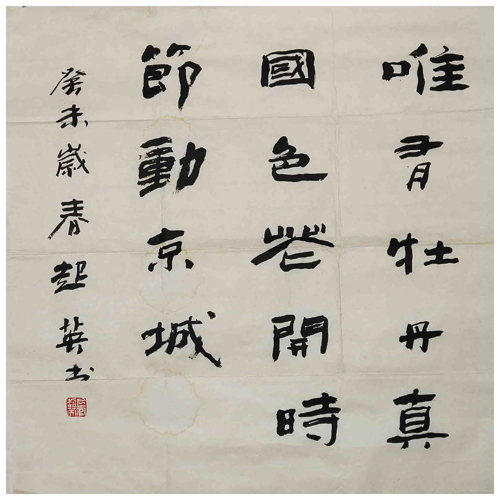 唯有牡丹真
國色花開時
節動京城
癸未歲春起英书